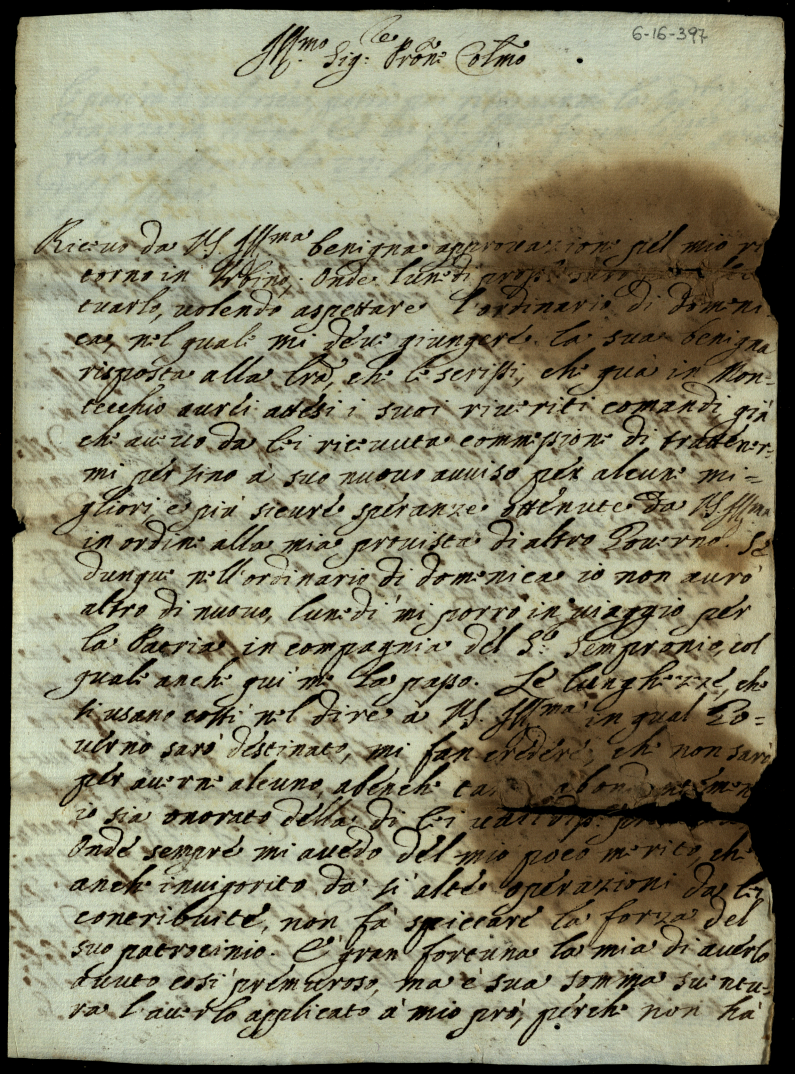 6-16-397
Ill.mo Sig.re Pron.e Colmo
Ricevo da VS Ill.ma benigna approvazione pel mio ri
torno in Urbino, Onde lunedì
tuarlo, volendo aspettare l'ordinario di domeni
ca, nel quale mi deve giungere la sua benigna
risposta alla lra, che le scrissi, che quà in Mon=
tecchio aurei attesi i suoi riveriti comandi, già
che avevo da lei ricevuta commissione di trattener
mi per sino à suo nuovo avviso per alcune mi=
gliori e più sicure speranze ottenute da VS Ill.ma
in ordine alla mia provista di altro Governo. Se
dunque nell'ordinario di domenica io non avrò
altro di nuovo, lunedì mi porrò in viaggio per
la Patria in compagnia del S.e Sempranio, col
quale anche qui me la passo. Le lunghezze, che
si usano costì nel dire à VS Ill.ma in qual Go=
verno sarò destinato, mi fan credere, che non sarò
per averne alcuno, abenche
io sia onorato della di lei
Onde sempre mi avedo del mio poco merito, che
anche invigorito da sì alte operazioni da lei
contribuite, non fà spiccare la forza del
suo patrocinio. È gran fortuna la mia di averlo
avuto così premuroso, ma è sua somma sventu=
ra l'averlo applicato à mio prò, perche non hà